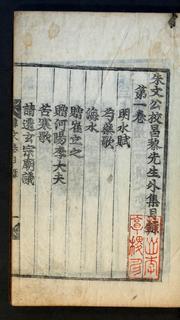 朱文公校昌黎先生外集目錄
第一卷
明水賦
芍藥歌
海水
贈崔立之
贈河陽李大夫
苦寒歌
請遷玄宗廟議